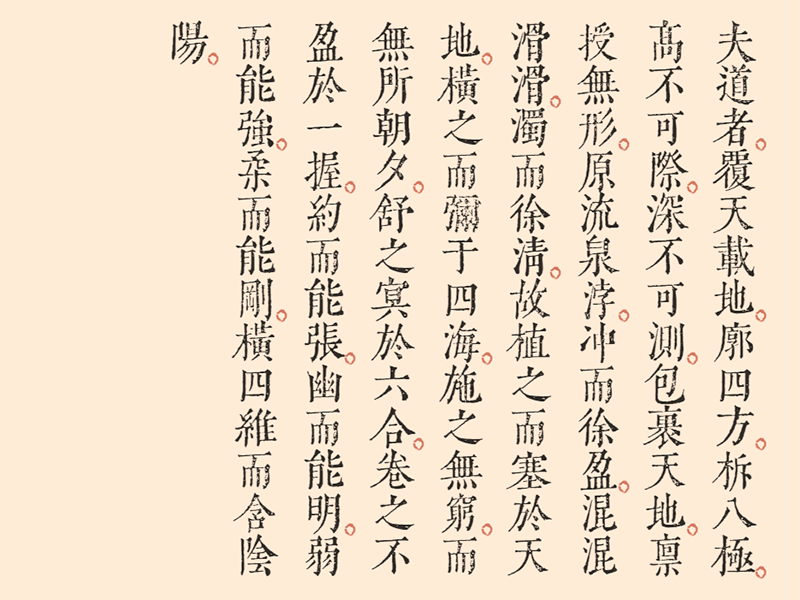 夫道者。覆天載地。廓四方。柝八極。
高不可際。深不可測。包裹天地。稟
授無形。原流泉浡。沖而徐盈。混混
滑滑。濁而徐清。故植之而塞於天
地。橫之而彌于四海。施之無窮。而
無所朝夕。舒之㝠於六合。卷之不
盈於一握。約而能張。幽而能明。弱
而能強。柔而能剛。橫四維而含陰
陽。